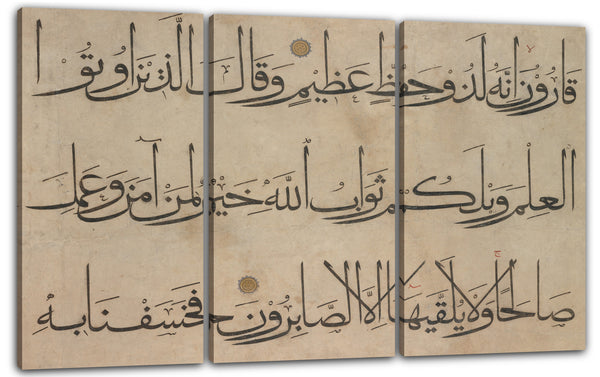 قَارُونُ اِنَّهُ لَذُو حَظٍّ عَظِيمٍ وَقَالَ الَّذِينَ اُوتُوا
العِلْمَ وَيْلَكُمْ ثَوَابُ اللَّهِ خَيْرٌ لِمَنْ آمَنَ وَعَمِلَ
صَالِحًا وَلَا يُلَقَّيهَا اِلَّا الصَّابِرُونَ فَخَسَفْنَا بِهِ